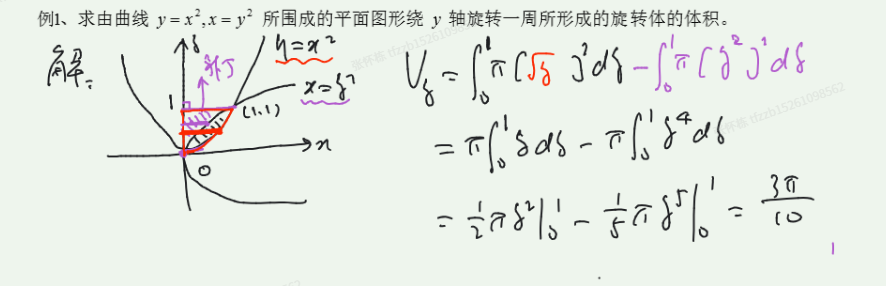 例1、求由曲线 y = x², x = y² 所围成的平面图形绕 y 轴旋转一周所形成的旋转体的体积。
解:
y
补丁
y = x²
x = y²
1
(1,1)
x
0
V_y = ∫₀¹ π [√y]² dy − ∫₀¹ π [y²]² dy
= π∫₀¹ y dy − π∫₀¹ y⁴ dy
= 1/2 π y² |₀¹ − 1/5 π y⁵ |₀¹ = 3π/10